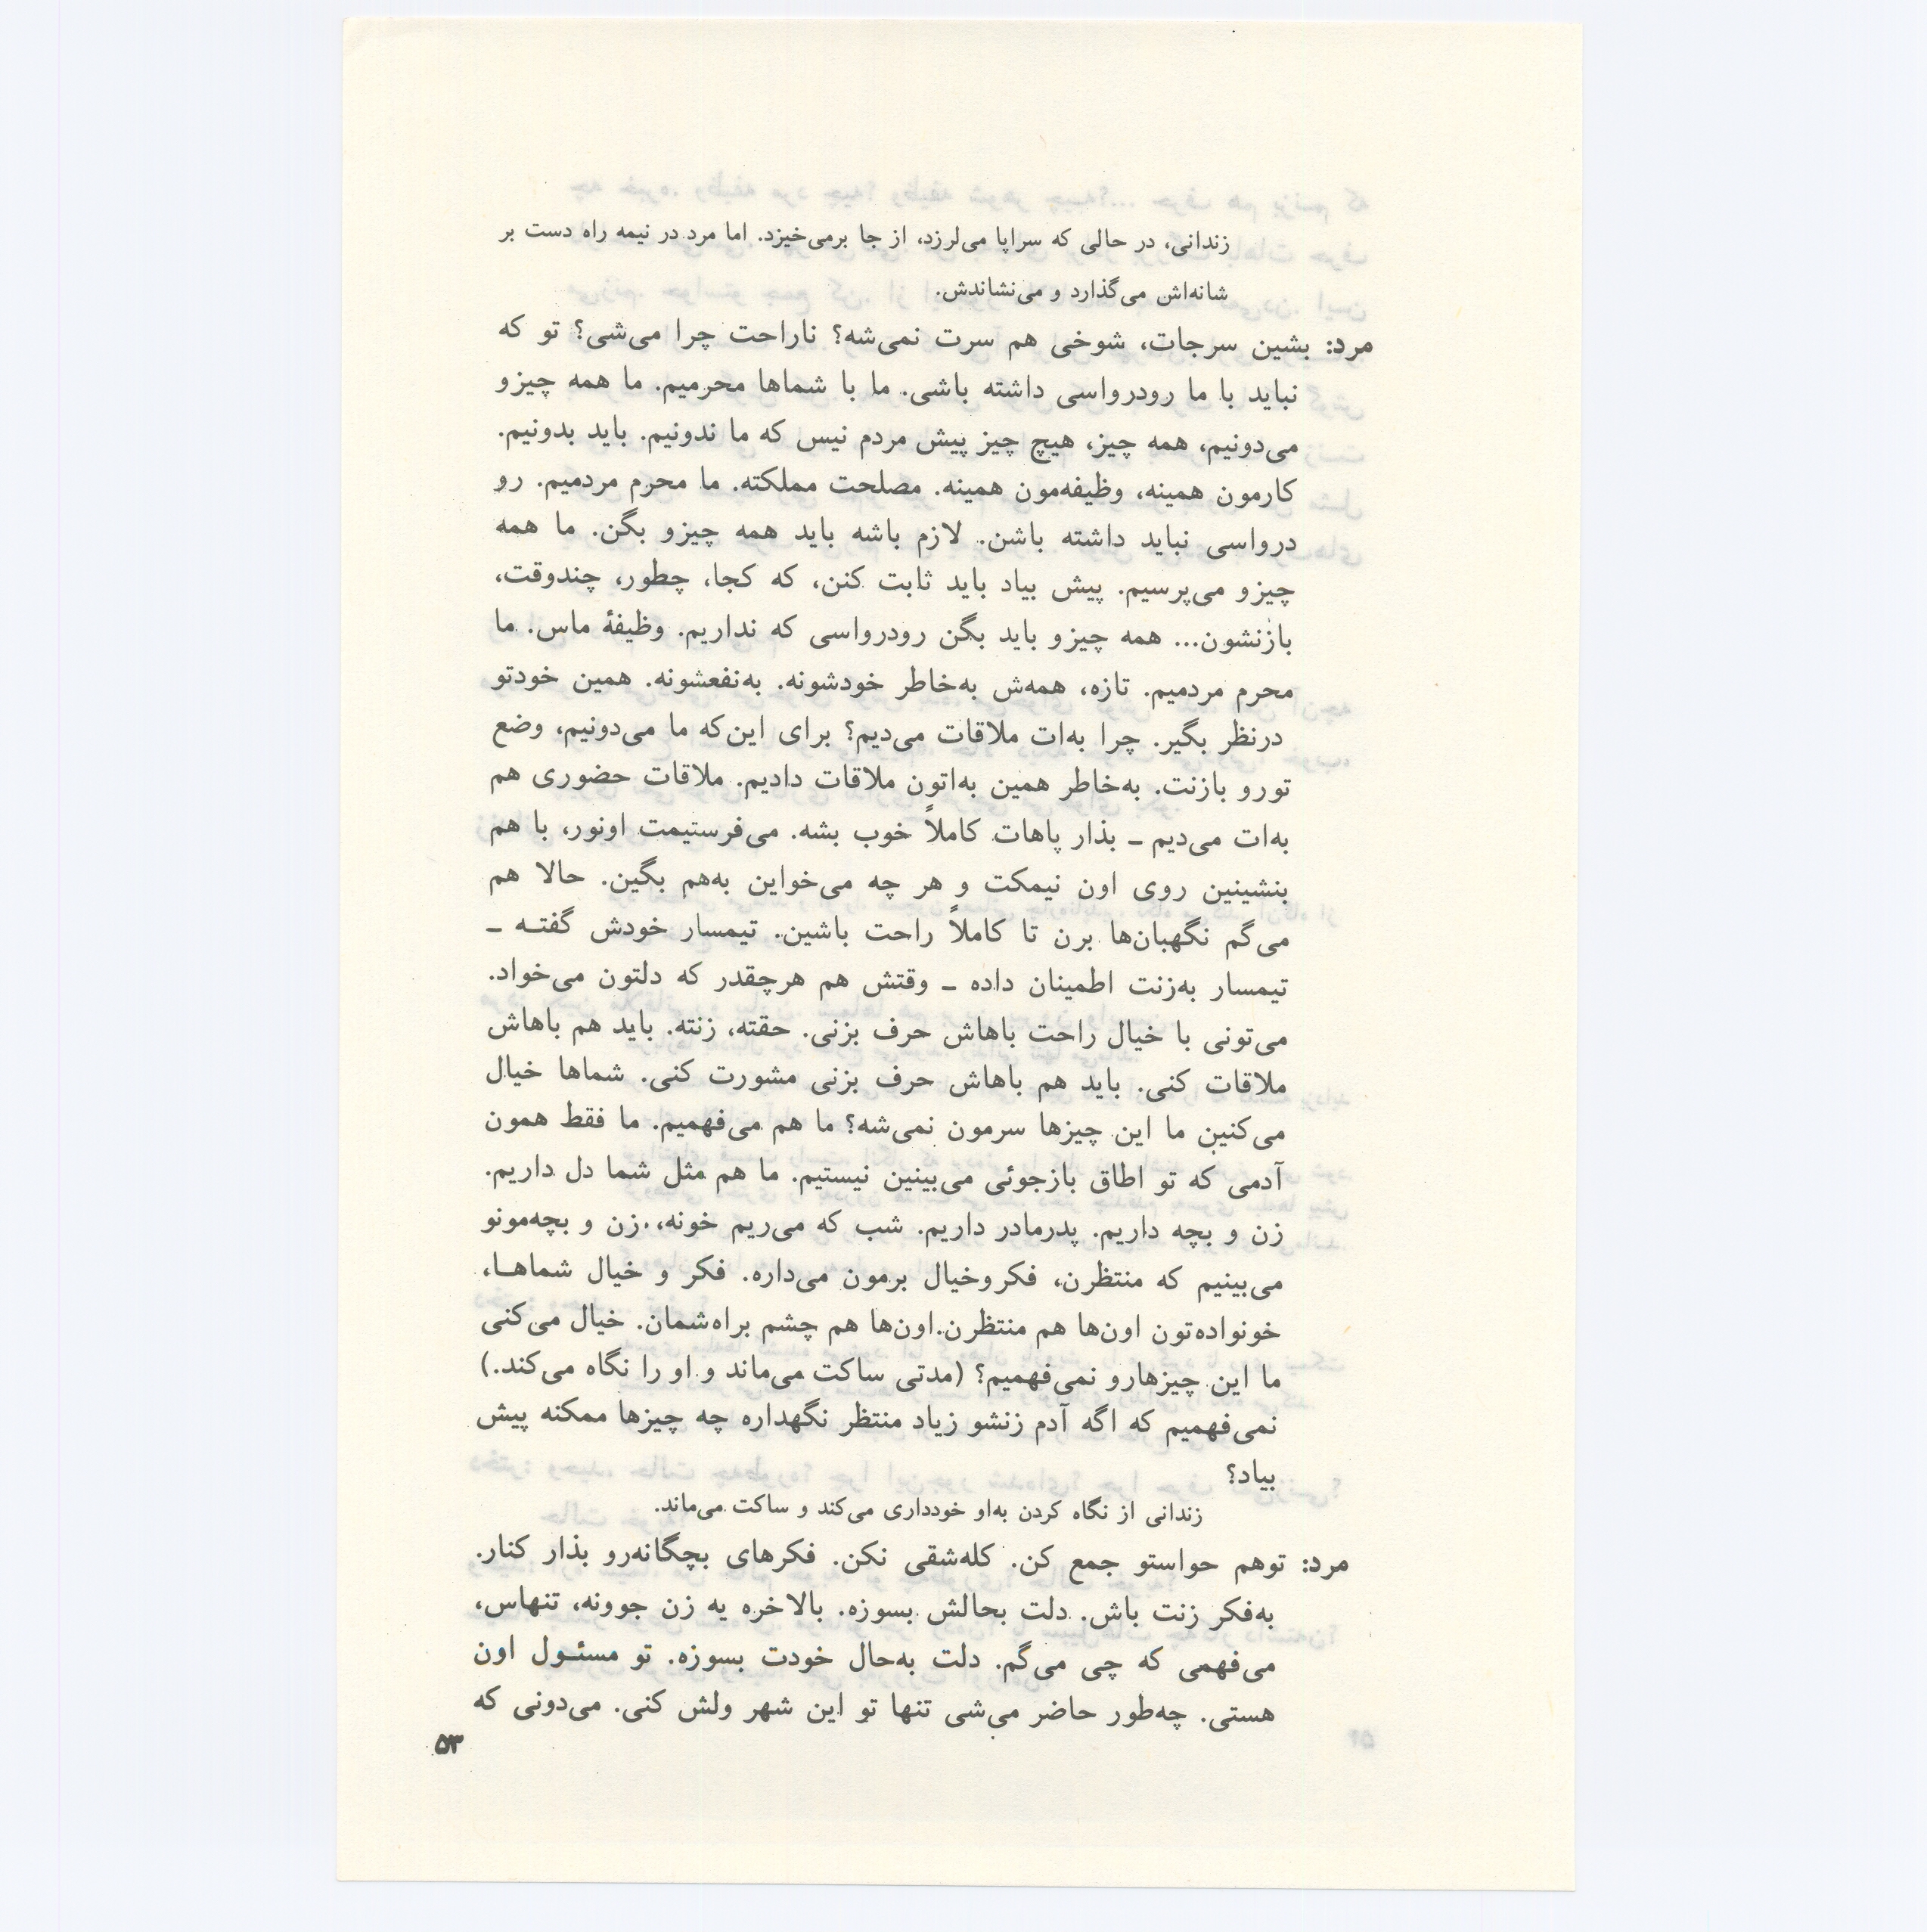 زندانی، در حالی که سراپا می‌لرزد، از جا برمی‌خیزد. اما مرد در نیمه راه دست بر
شانه‌اش می‌گذارد و می‌نشاندش.
مرد: بشین سرجات، شوخی هم سرت نمی‌شه؟ ناراحت چرا می‌شی؟ تو که
نباید با ما رودرواسی داشته باشی. ما با شماها محرمیم. ما همه چیزو
می‌دونیم، همه چیز، هیچ چیز پیش مردم نیس که ما ندونیم. باید بدونیم.
کارمون همینه، وظیفه‌مون همینه. مصلحت مملکته. ما محرم مردمیم. رو
درواسی نباید داشته باشن. لازم باشه باید همه چیزو بگن. ما همه
چیزو می‌پرسیم. پیش بیاد باید ثابت کنن، که کجا، چطور، چندوقت،
بازنشون... همه چیزو باید بگن رودرواسی که نداریم. وظیفهٔ ماس. ما
محرم مردمیم. تازه، همه‌ش به‌خاطر خودشونه. به‌نفعشونه. همین خودتو
درنظر بگیر. چرا به‌ات ملاقات می‌دیم؟ برای این‌که ما می‌دونیم، وضع
تورو بازنت. به‌خاطر همین به‌اتون ملاقات دادیم. ملاقات حضوری هم
به‌ات می‌دیم ـ بذار پاهات کاملاً خوب بشه. می‌فرستیمت اونور، با هم
بنشینین روی اون نیمکت و هر چه می‌خواین به‌هم بگین. حالا هم
می‌گم نگهبان‌ها برن تا کاملاً راحت باشین. تیمسار خودش گفتـه ـ
تیمسار به‌زنت اطمینان داده ـ وقتش هم هرچقدر که دلتون می‌خواد.
می‌تونی با خیال راحت باهاش حرف بزنی. حقته، زنته. باید هم باهاش
ملاقات کنی. باید هم باهاش حرف بزنی مشورت کنی. شماها خیال
می‌کنین ما این چیزها سرمون نمی‌شه؟ ما هم می‌فهمیم. ما فقط همون
آدمی که تو اطاق بازجوئی می‌بینین نیستیم. ما هم مثل شما دل داریم.
زن و بچه داریم. پدرمادر داریم. شب که می‌ریم خونه، زن و بچه‌مونو
می‌بینیم که منتظرن، فکروخیال برمون می‌داره. فکر و خیال شماهـا،
خونواده‌تون اون‌ها هم منتظرن. اون‌ها هم چشم براه‌شمان. خیال می‌کنی
ما این چیزهارو نمی‌فهمیم؟ (مدتی ساکت می‌ماند و او را نگاه می‌کند.)
نمی‌فهمیم که اگه آدم زنشو زیاد منتظر نگهداره چه چیزها ممکنه پیش
بیاد؟
زندانی از نگاه کردن به‌او خودداری می‌کند و ساکت می‌ماند.
مرد: توهم حواستو جمع کن. کله‌شقی نکن. فکرهای بچگانه‌رو بذار کنار.
به‌فکر زنت باش. دلت بحالش بسوزه. بالاخره یه زن جوونه، تنهاس،
می‌فهمی که چی می‌گم. دلت به‌حال خودت بسوزه. تو مسئـول اون
هستی. چه‌طور حاضر می‌شی تنها تو این شهر ولش کنی. می‌دونی که
۵۳